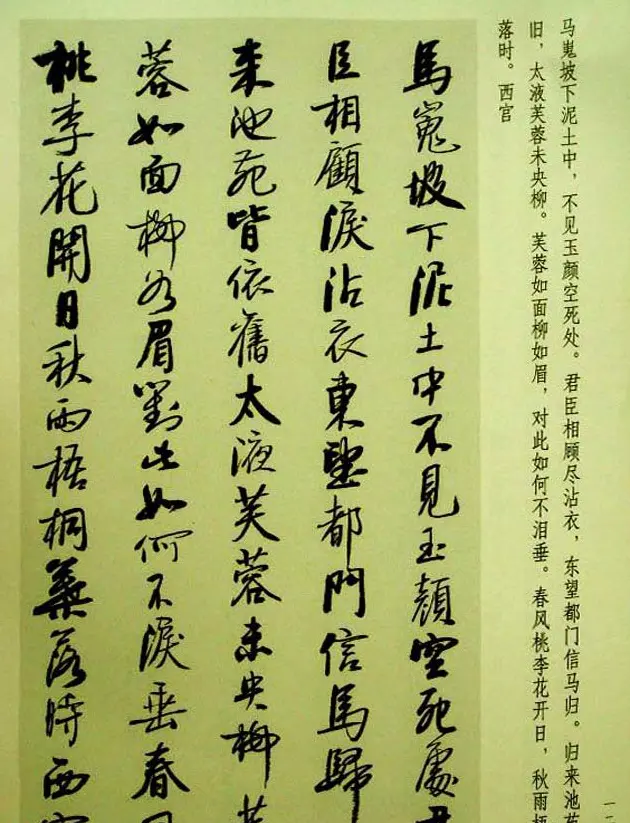 马嵬坡下泥土中，不见玉颜空死处。君臣相顾尽沾衣，东望都门信马归。归来池苑
旧，太液芙蓉未央柳。芙蓉如面柳如眉，对此如何不泪垂。春风桃李花开日，秋雨梧
落时。西宫
馬嵬坡下泥土中不見玉顏空死處君
臣相顧淚沾衣東望都門信馬歸
来池苑皆依舊太液芙蓉未央柳芙
蓉如面柳如眉對此如何不淚垂春
桃李花開日秋雨梧桐葉落時西宮